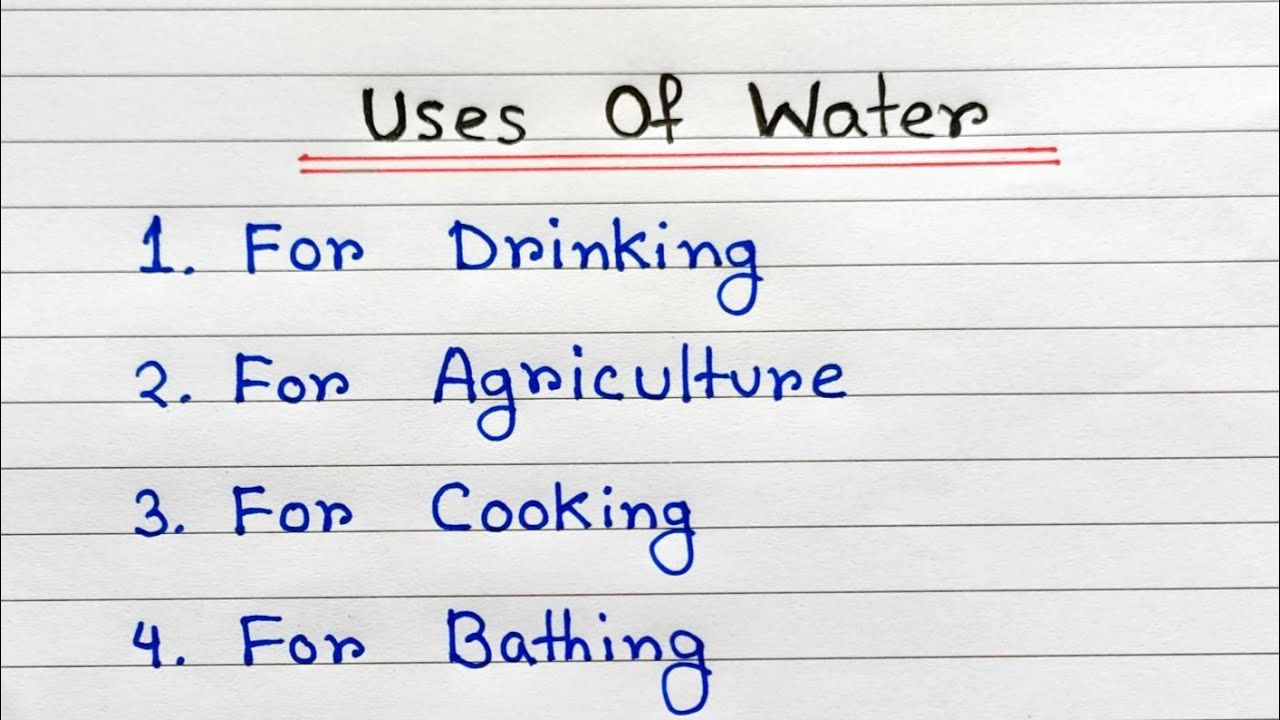 Uses Of Water
1. For Drinking
2. For Agriculture
3. For Cooking
4. For Bathing